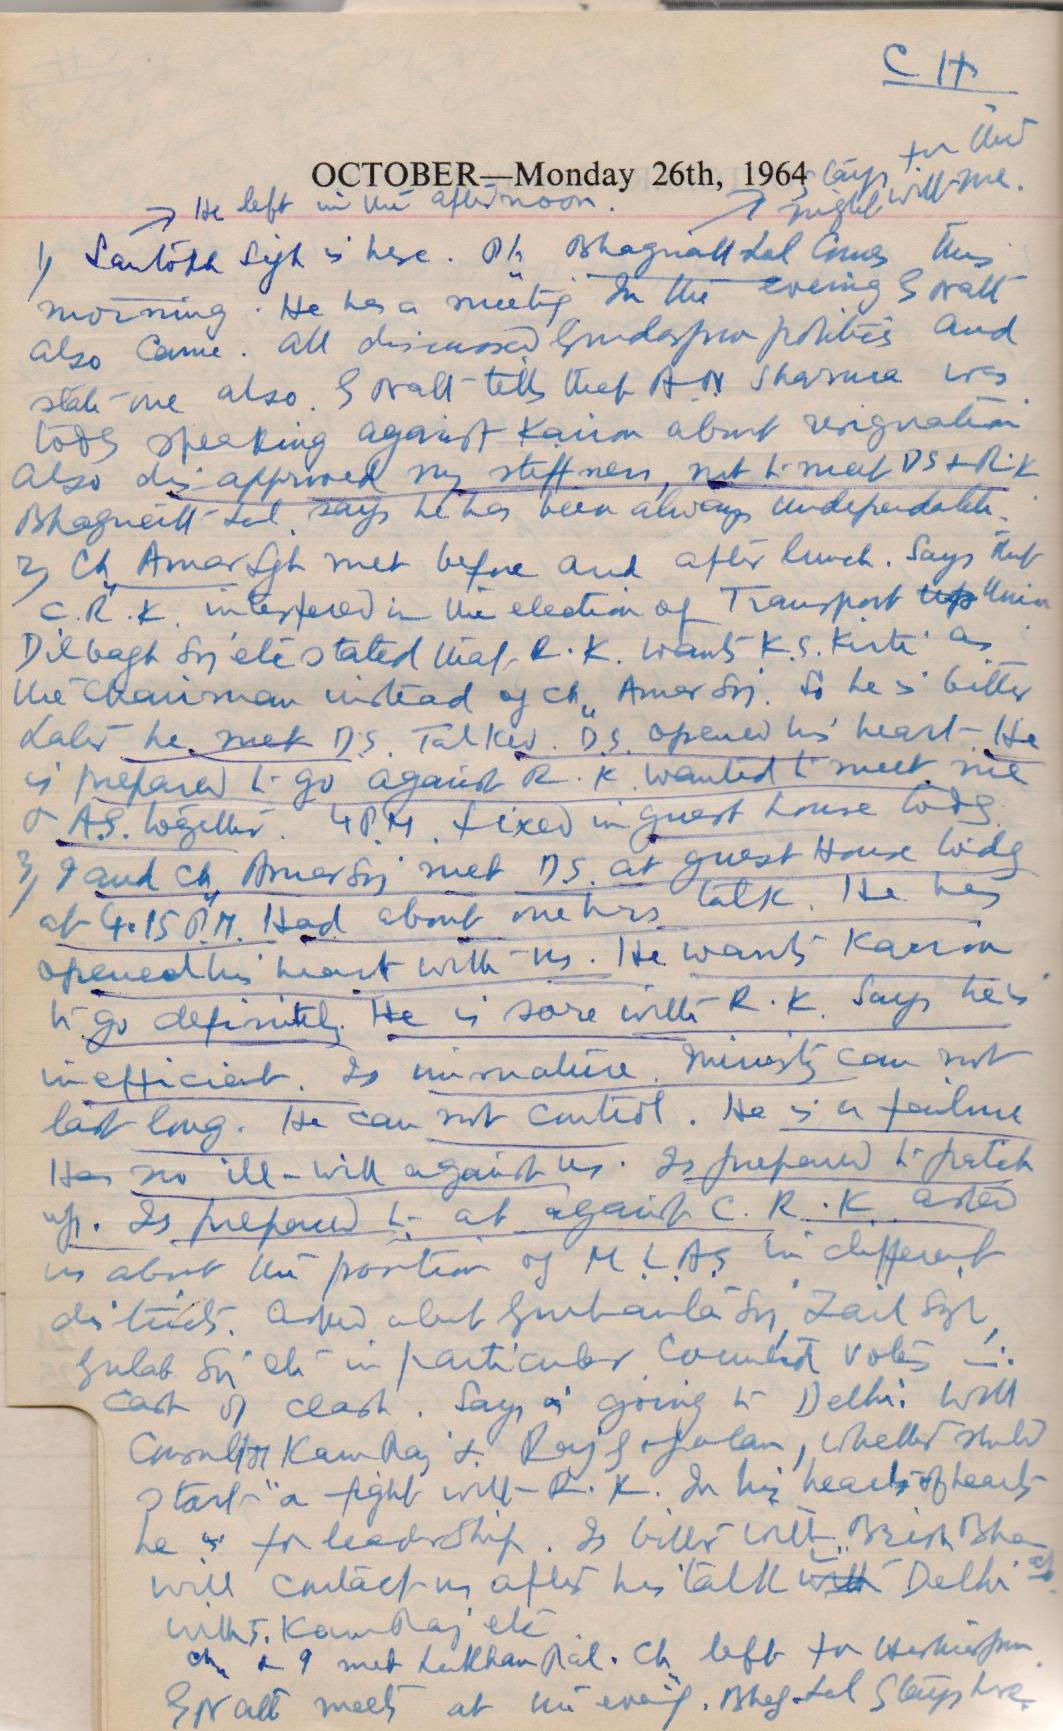 C H
OCTOBER—Monday 26th, 1964
→ He left in the afternoon. → Stays for the night with me.
1) Santokh Sgh is here. Pt. Bhagwatt Lal Comes this
morning. He has a meeting In the evening S Natt
also Came. All discussed Gurdaspur politics and
state one also. S Natt tells that A.N Sharma was
today speaking against Kairon about resignation
Also disapproved my stiffness, not to meet DS & R.K
Bhagwatt Lal says he has been always undependable.
2) Ch Amar Sgh met before and after lunch. Says that
C.R.K. interfered in the election of Transport Union
Dilbagh Sn etc stated that R.K. wants K.S. Kirti as
the Chairman instead of Ch. Amar Sn. So he is bitter
Later he met D.S. Talked. D.S. opened his heart. He
is prepared to go against R.K. wanted to meet me
& A.S. together. 4 P.M. fixed in guest house today.
3) I and Ch Amar Sn met D.S. at guest House today
at 4.15 P.M. Had about one hrs talk. He has
opened his heart with us. He wants Kairon
to go definitely. He is sore with R.K. Says he is
inefficient. Is immature. Ministry can not
last long. He can not control. He is a failure
Has no ill-will against us. Is prepared to patch
up. Is prepared to at against C.R.K asked
us about the position of M.L.AS in different
districts. Asked about Gurbanta Sn, Zail Sgh,
Gulab Sn etc in particular Communist votes in
case of clash. Says is going to Delhi. Will
Consult Kam Raj & Raj Gopalan, whether should
start a fight with R.K. In his hearts of hearts
he is for leadership. Is bitter with Brish Bhan
will contact us after his talk at Delhi
with Kam Raj etc
Ch & I met Lakhan Pal. Ch left for Hoshiarpur.
S Natt meets at the evening. Bhag Lal Stays here.